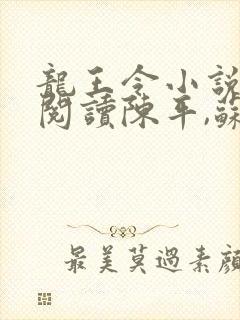 龍王令小說
閱讀陳平,蘇
最美莫過素顏